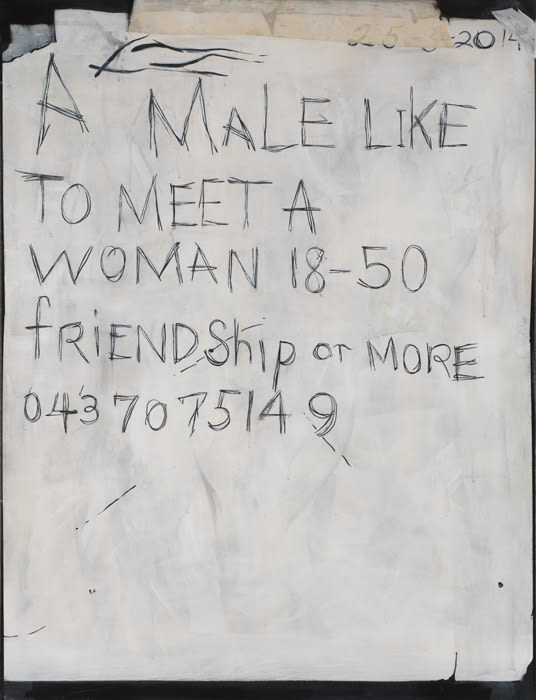 25-5-2014
A MALE LIKE
TO MEET A
WOMAN 18-50
fRiENDShip or MORE
043 70 75149